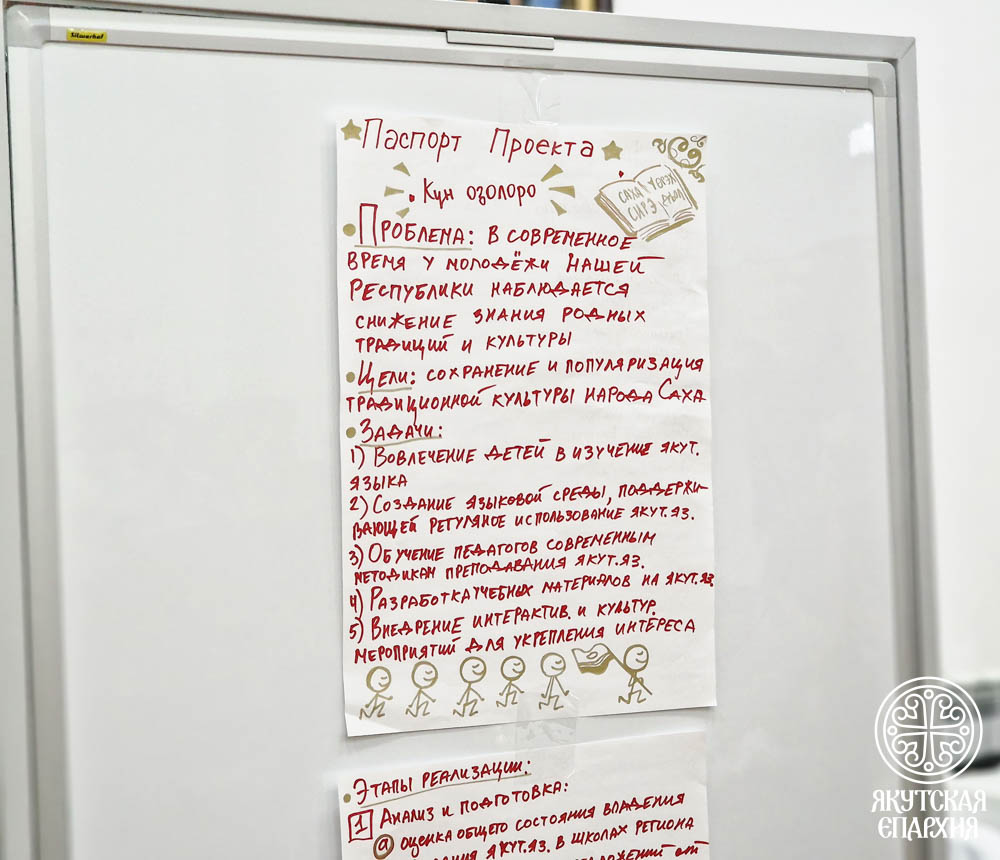 Silwerhof
Паспорт Проекта
Күн оҕолоро
САХА ҮӨРЭХ
СИРЭ ДЬЫЛ
Проблема: в современное
время у молодёжи нашей
Республики наблюдается
снижение знания родных
традиций и культуры
Цели: сохранение и популяризация
традиционной культуры народа Саха
Задачи:
1) Вовлечение детей в изучение якут.
языка
2) Создание языковой среды, поддержи-
вающей регуляное использование якут.яз.
3) Обучение педагогов современным
методикам преподавания якут.яз.
4) Разработка учебных материалов на якут.яз.
5) Внедрение интерактив. и культур.
мероприятий для укрепления интереса
Этапы реализации:
1 Анализ и подготовка:
а оценка общего состояния владения
якут.яз. в школах региона
ЯКУТСКАЯ
ЕПАРХИЯ